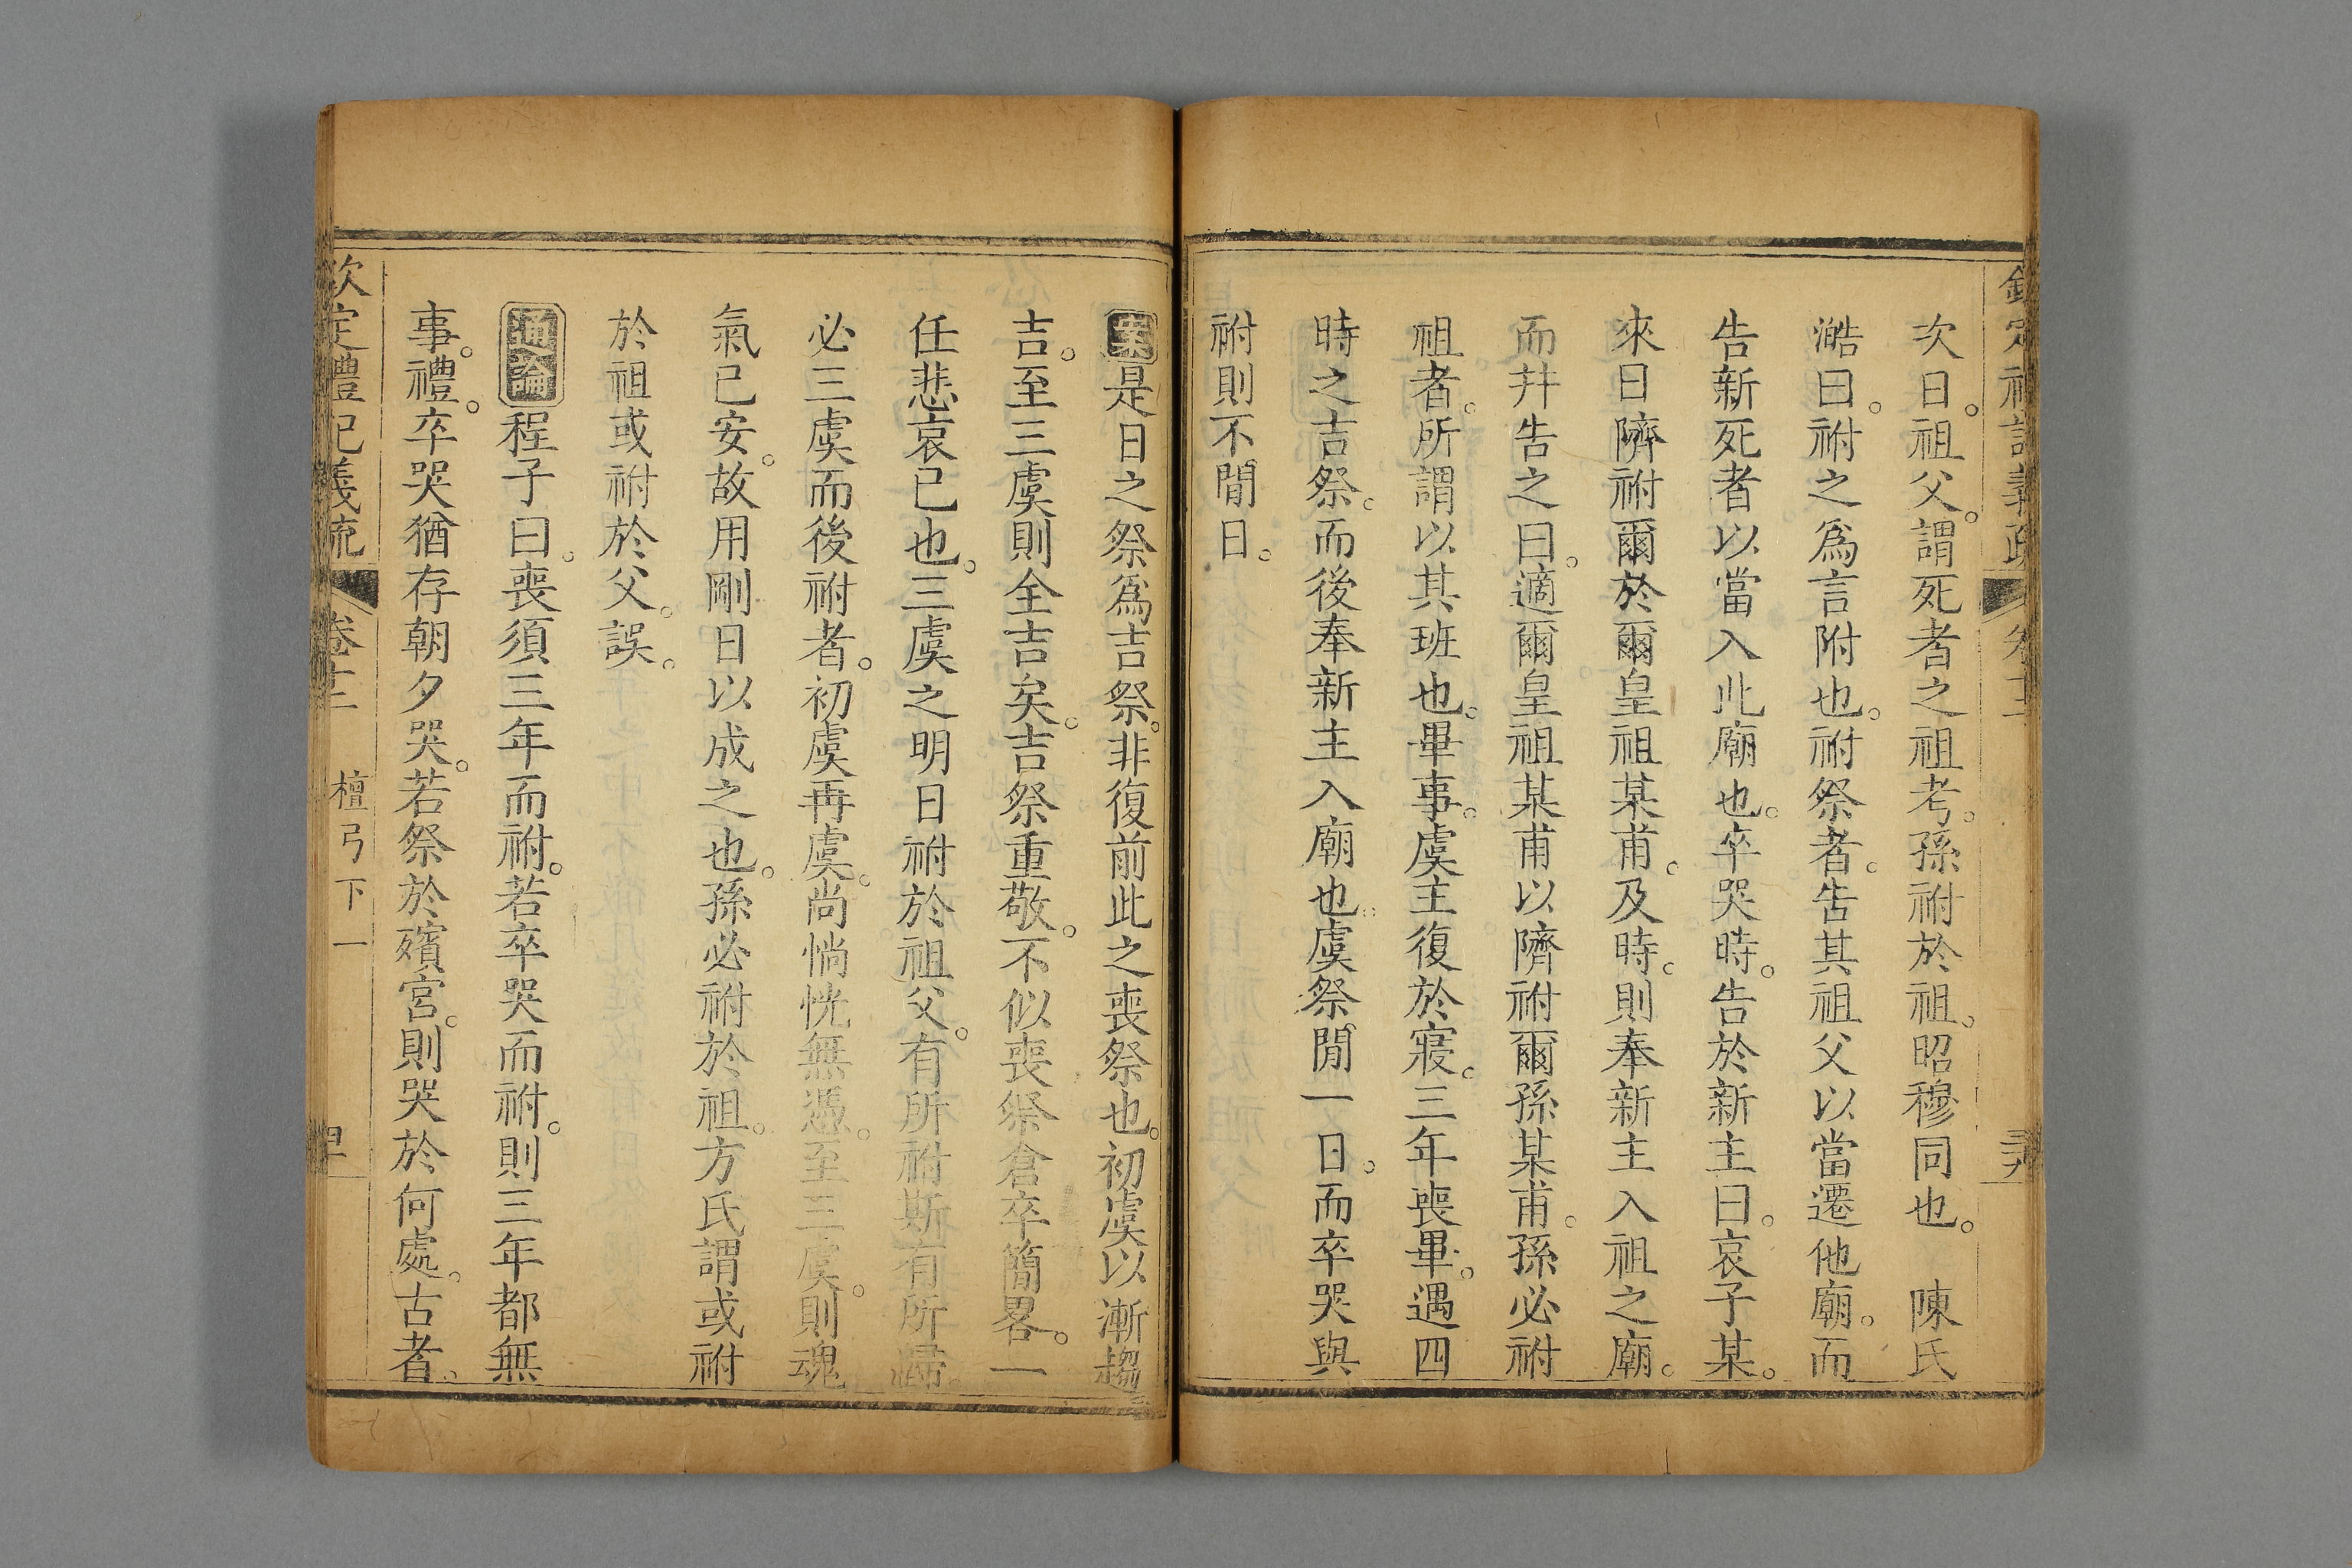 次日。祖父。謂死者之祖考。孫祔於祖。昭穆同也。 陳氏
澔曰。祔之爲言附也。祔祭者。告其祖父以當遷他廟。而
告新死者以當入此廟也。卒哭時。告於新主曰。哀子某。
來日隮祔爾於爾皇祖某甫。及時。則奉新主入祖之廟。
而幷告之曰。適爾皇祖某甫以隮祔爾孫某甫。孫必祔
祖者。所謂以其班也。畢事。虞主復於寢。三年喪畢。遇四
時之吉祭。而後奉新主入廟也。虞祭閒一日。而卒哭與
祔則不閒日。
案是日之祭爲吉祭。非復前此之喪祭也。初虞以漸趨
吉。至三虞則全吉矣。吉祭重敬。不似喪祭倉卒簡畧。一
任悲哀已也。三虞之明日祔於祖父。有所祔斯有所歸。
必三虞而後祔者。初虞再虞。尚惝恍無憑。至三虞。則魂
氣已安。故用剛日以成之也。孫必祔於祖。方氏謂或祔
於祖或祔於父。誤。
通論程子曰。喪須三年而祔。若卒哭而祔。則三年都無
事。禮。卒哭猶存朝夕哭。若祭於殯宮。則哭於何處。古者。
欽定禮記義疏 卷十二 檀弓下一